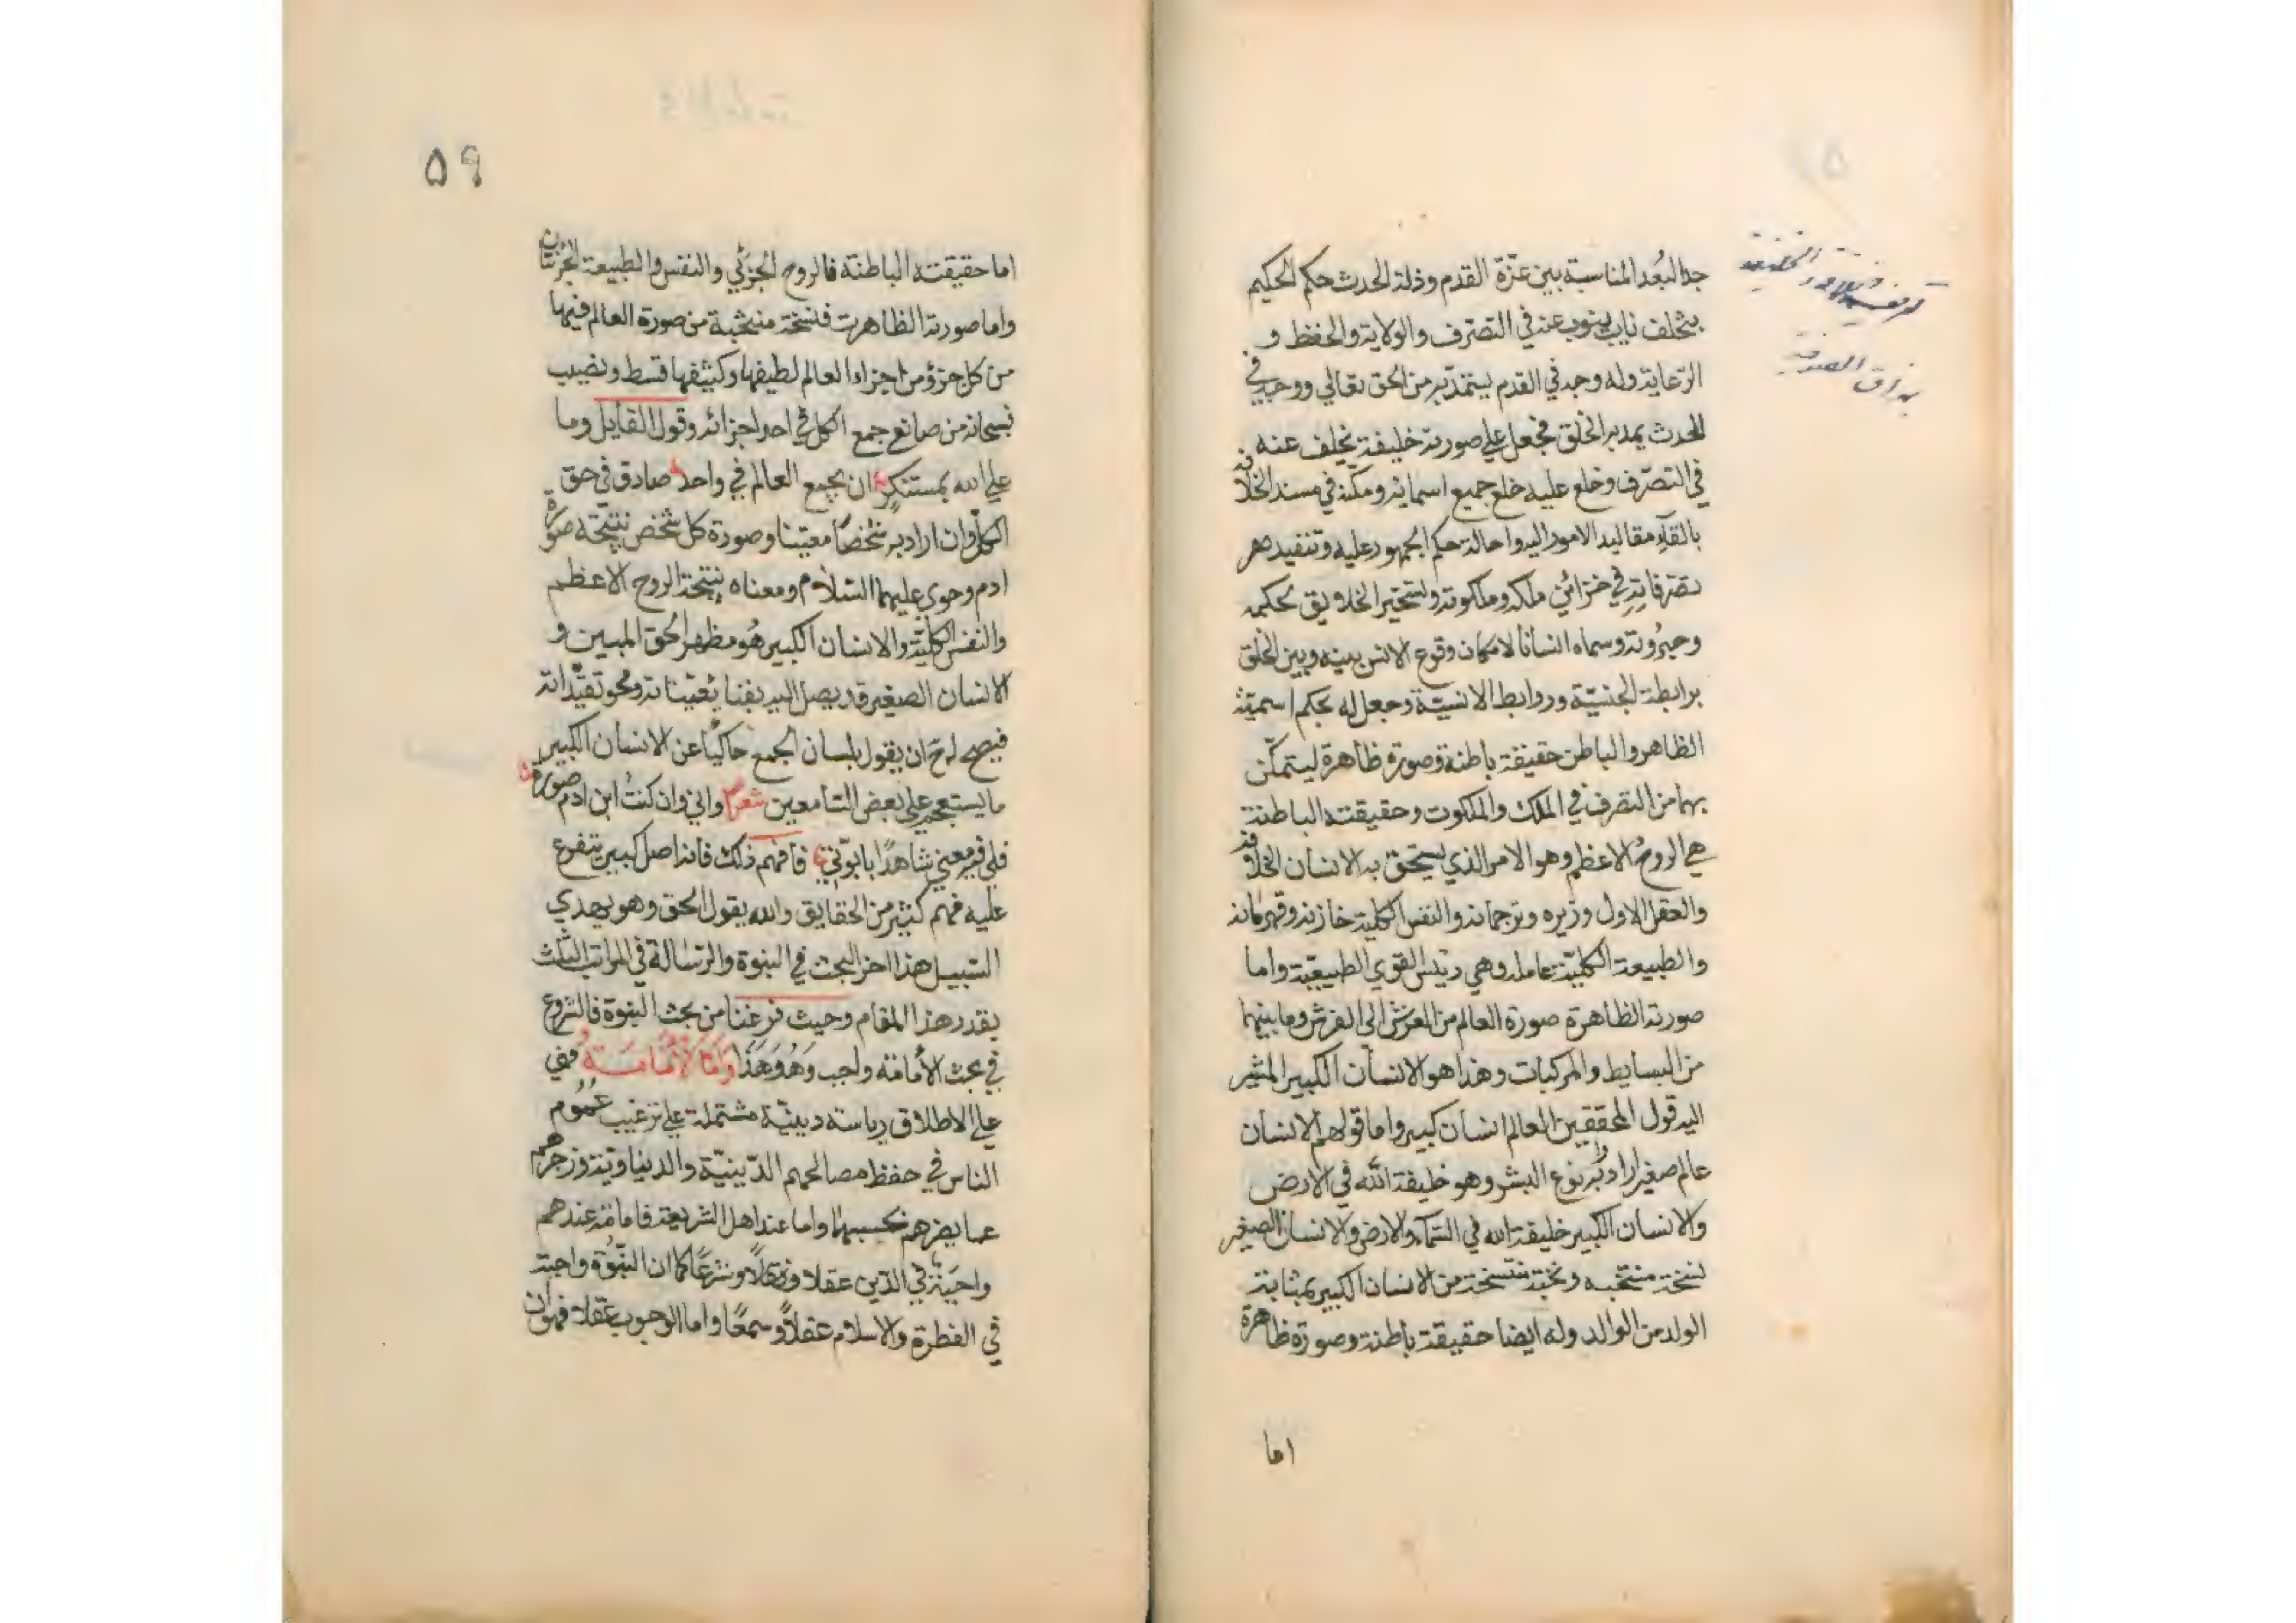 جدا لبُعد المناسبة بين عزّة القدم وذلة الحدث حكم الحكيم
بتخلف نايب ينوب عنه في التصرف والولاية والحفظ و
الرعاية وله وجه في القدم ليستمد به من الحق تعالي ووجه في
الحدث يمد به الخلق فجعل علي صورته خليفة يخلف عنه
في التصرف وخلع عليه خلع جميع اسمائه ومكنه في مسند الخلافة
بالقآء مقاليد الامور اليه واحالة حكم الجمهور عليه وتنفيد
تصرفاته في خزائن ملكه وملكوته وتسخير الخلايق لحكمه
وجبروته وسماه انسانا لامكان وقوع الانس بينه وبين الخلق
برابطة الجنسيّة وروابط الانسيّة وجعل له بحكم اسميّه
الظاهر والباطن حقيقة باطنة وصورة ظاهرة ليتمكّن
بهما من التصرف في الملك والملكوت وحقيقته الباطنة
هي الروحُ الاعظم وهو الامر الذي يستحق به الانسان الخلافة
والعقل الاول وزيره وترجمانه والنفس الكلية خازنه وقهرمانه
والطبيعة الكليّة عامله وهي رئيس القوي الطبيعيّة واما
صورته الظاهرة صورة العالم من العرش الي الفرش وما بينهما
من البسايط والمركبات وهذا هو الانسان الكبير المشير
اليه قول المحققين العالم انسان كبير واما قولهم الانسان
عالم صغير ارادوا به نوع البشر وهو خليفة الله في الارض
والانسان الكبير خليفة الله في السّمآء والارض والانسان الصغير
نسخة منتخبه ونخبة منتسخة من الانسان الكبير بمثابة
الولد من الوالد وله ايضا حقيقة باطنة وصورة ظاهرة
اما
٥٩
اما حقيقته الباطنة فالروح الجزئي والنفس والطبيعة الجزئيتان
واما صورته الظاهرة فنسخة منتخبة من صورة العالم فيها
من كل جزؤ من اجزاء العالم لطيفها وكثيفها قسط ونصيب
فسبحانه من صانع جمع الكل في احد اجزائه وقول القايل وما
علي الله بمستنكرٍ ان يجمع العالم في واحد صادق في حق
الكل وان اراد به شخصًا معينا وصورة كل شخص نتيجة صورة
ادم وحوي عليهما السّلام ومعناه نتيجة الروح الاعظم
والنفس الكليّة والانسان الكبير هُو مظهر الحق المبين و
الانسان الصغير قد يصل اليه بفناء تعيّناته ومحو تقيّداته
فيصح له ح ان يقول بلسان الجمع حاكيًا عن الانسان الكبير
ما يستعجم علي بعض السّامعين شعر واني وان كنتُ ابن ادم صورة
فلي فيه معني شاهدًا بابوّتي فافهم ذلك فانه اصل كبير يتفرع
عليه فهم كثير من الحقايق والله يقول الحق وهو يهدي
السّبيل هذا اخر البحث في النبوة والرّسالة في المراتب الثلث
بقدر هذا المقام وحيث فرغنا من بحث النبوة فالشروع
في بحث الأمامة واجب وَهُو هَذا وَامّا الأمَامَةُ فهي
علي الاطلاق رياسة دينيّة مشتملة علي ترغيب عُمُوم
الناس في حفظ مصالحهم الدّينيّة والدنياويّة وزجرهم
عما يضرهم بحسبهما واما عند اهل الشريعة فامامة عندهم
واجبة في الدّين عقلا ونقلاً وشرعًا كما ان النبّوة واجبة
في الفطرة والاسلام عقلاً وسمعًا واما الوجوب عقلا فهو ان